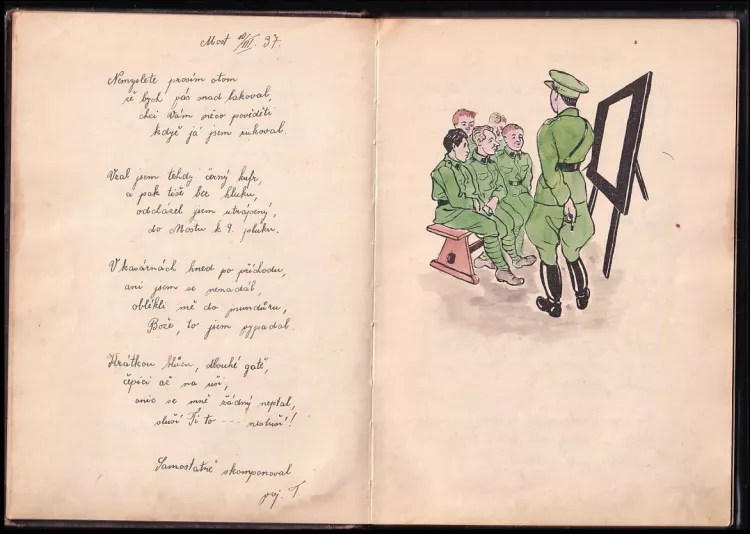 Most 10/III. 37.
Nemyslete prosím otom
že bych vás snad lakoval,
chci Vám něco pověděti
když já jsem rukoval.
Vzal jsem tehdy černý kufr,
a pak tiše bez hluku,
odcházel jsem utrápený,
do Mostu k 9. pluku.
V kasárnách hned po příchodu,
ani jsem se nenadál,
oblékli mě do mundůru,
Bože, to jsem vypadal.
Krátkou blůzu, dlouhé gatě,
čepici až na uši,
anic se mně žádný neptal,
sluší Ti to --- nesluší!
Samostatně skomponoval
voj. T